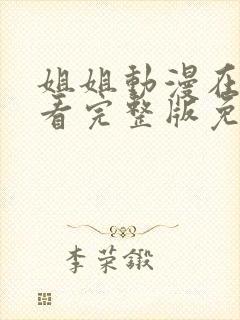 姐姐動漫在
看完整版免
李荣鍛